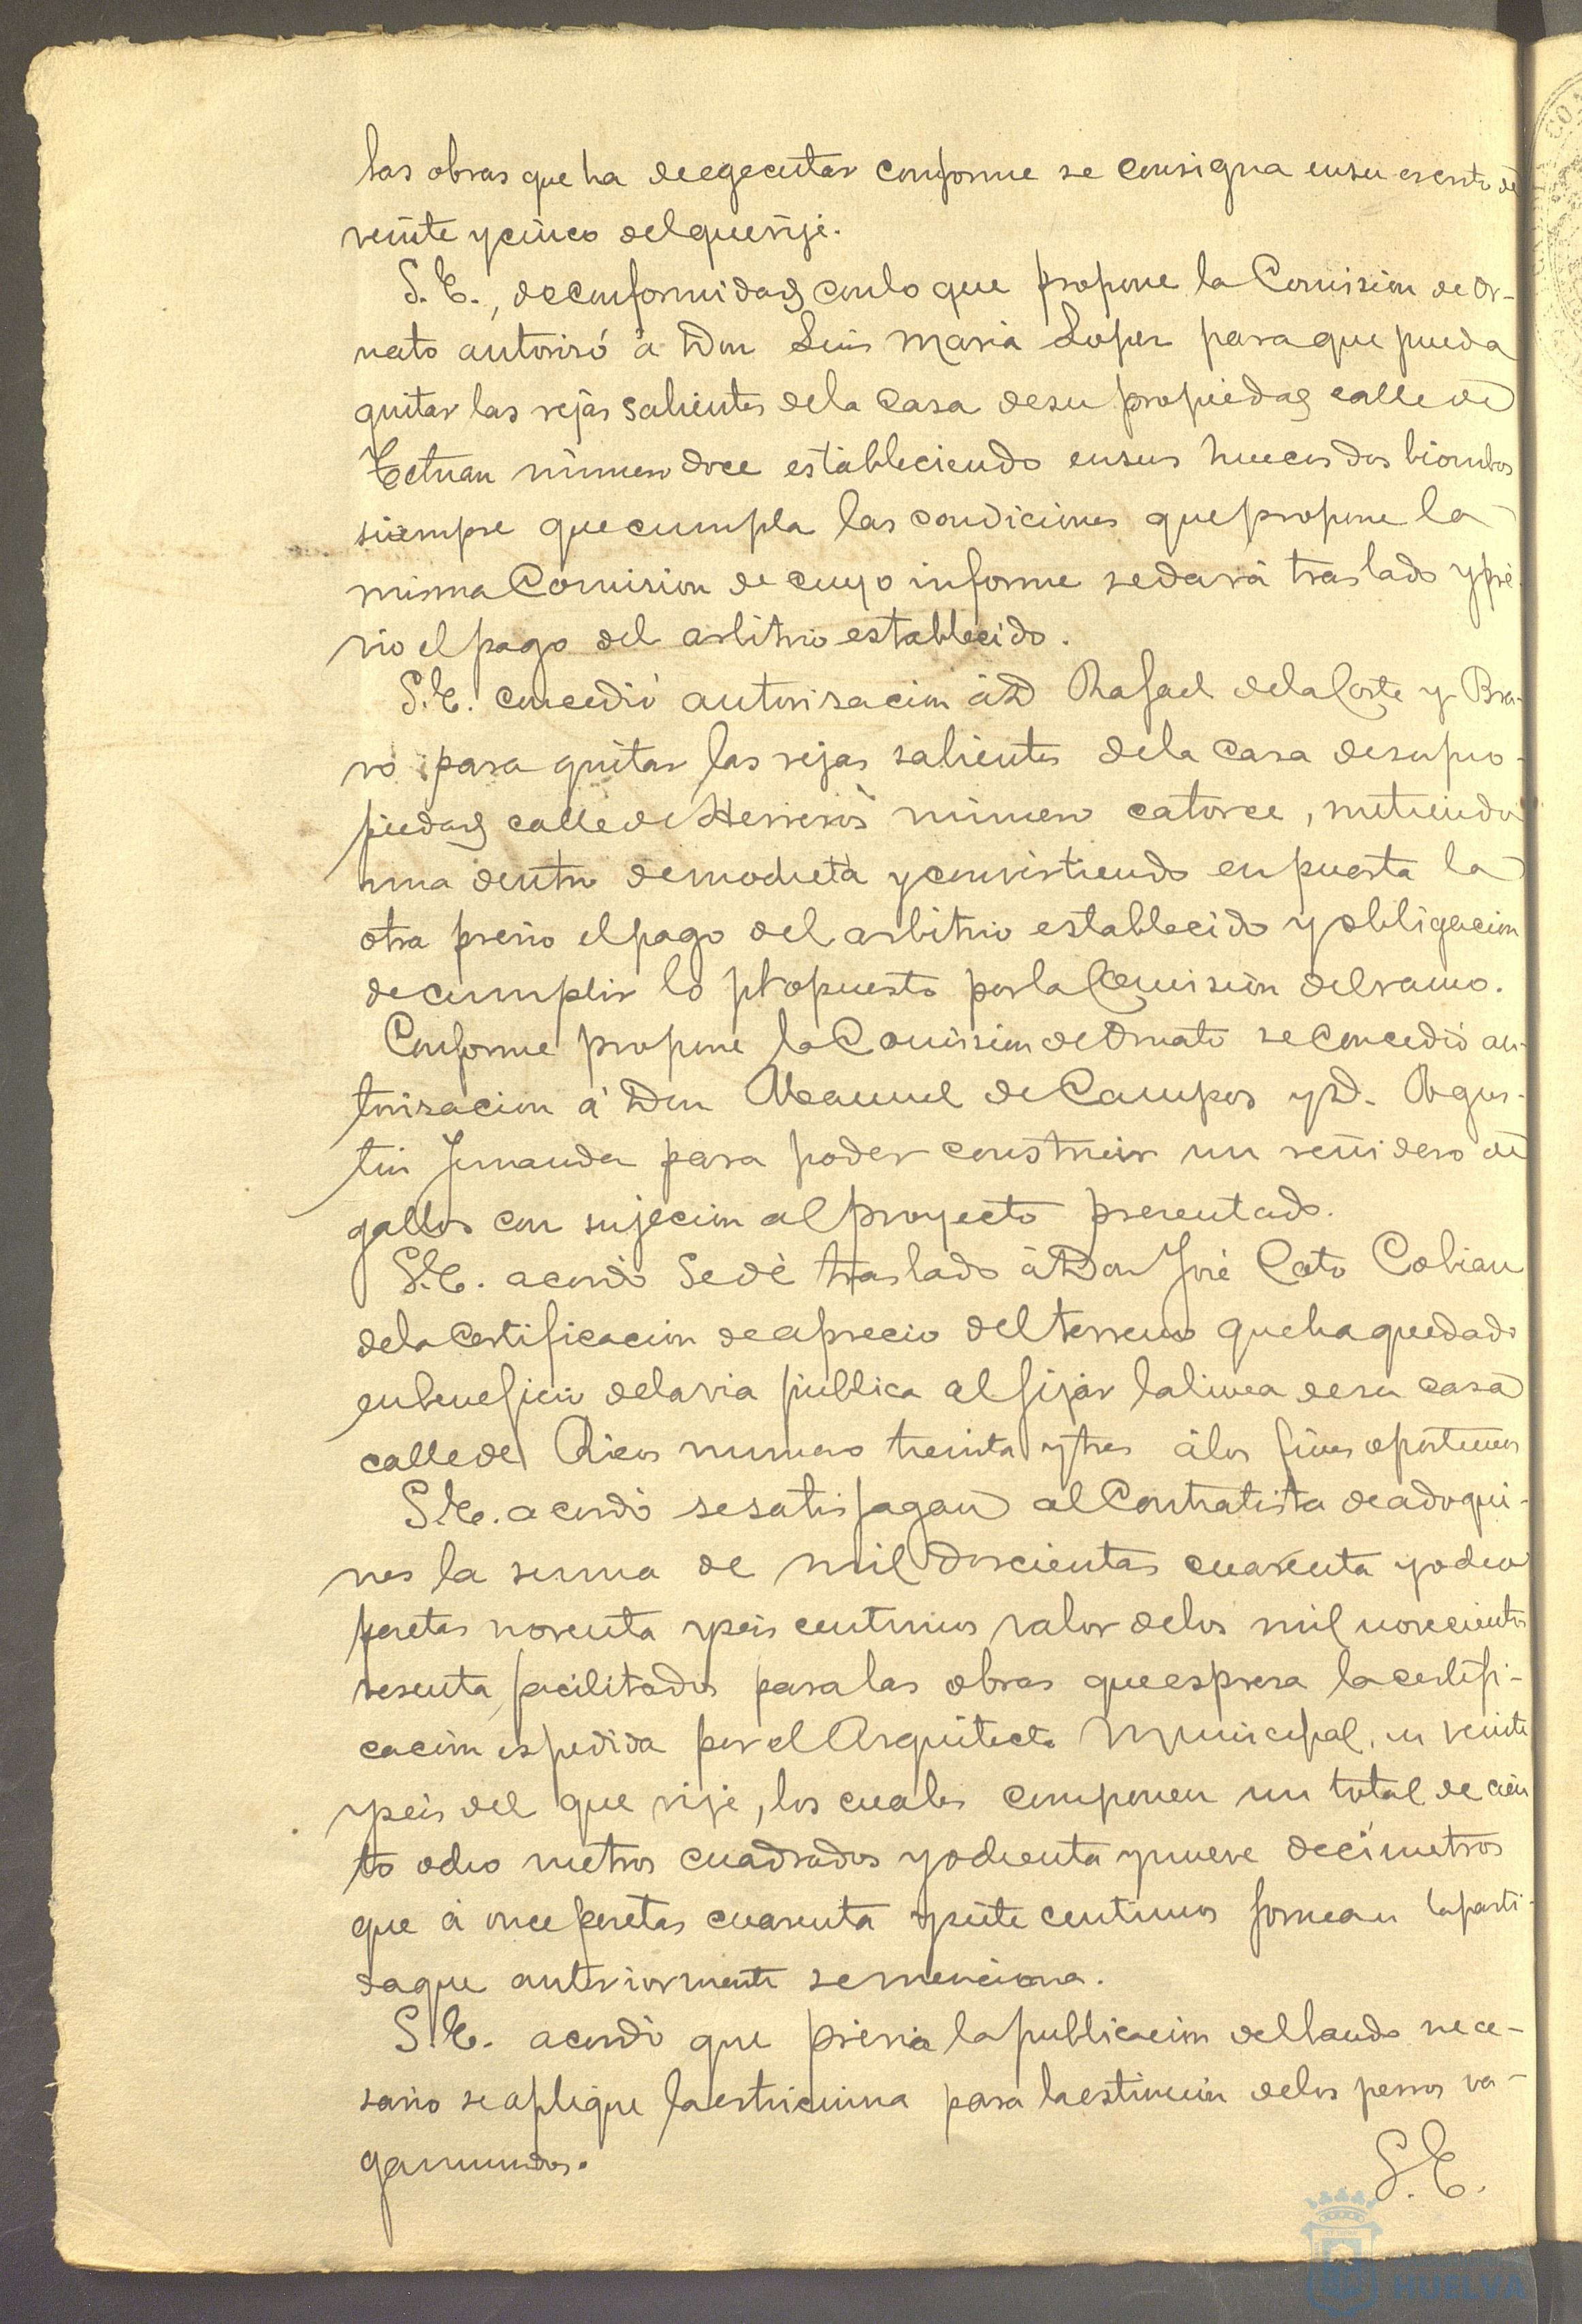 las obras que ha de egecutar conforme se consigna en su escrito de
veinte y cinco del que rije.
S.E., de conformidad con lo que propone la Comision de Or-
nato autorisó á Don Luis Maria Lopez para que pueda
quitar las rejas salientes de la casa de su propiedad calle de
Tetuan número doce estableciendo en sus huecos dos biombos
siempre que cumpla las condiciones que propone la
misma Comision de cuyo informe se dará traslado y pré-
vio el pago del arbitrio establecido.
S.E. concedió autorisacion á D Rafael de la Corte y Bra-
vo para quitar las rejas salientes de la casa de su pro-
piedad calle de Herreros número catorce, metiendo
una dentro de mocheta y convirtiendo en puerta la
otra previo el pago del arbitrio establecido y obligacion
de cumplir lo propuesto por la Comision del ramo.
Conforme propone la Comision de Ornato se concedió au-
torisacion á Don Manuel de Campos y D. Agus-
tin Jernandez para poder construir un reñidero de
gallos con sujecion al proyecto presentado.
S.E. acordó se dé traslado á Don José Coto Cobian
de la Certificacion de aprecio del terreno que ha quedado
en beneficio de la via pública al fijar la linea de su casa
calle de Ricos numero treinta y tres á los fines oportunos
S.E. acordó se satisfagan al Contratista de adoqui-
nes la suma de mil doscientas cuarenta y ocho
pesetas noventa y seis centimos valor de los mil novecientos
sesenta facilitados para las obras que espresa la certifi-
cacion espedida por el Arquitecto Municipal, en veinte
y seis del que rije, los cuales componen un total de cien
to ocho metros cuadrados y ochenta y nueve decímetros
que á once pesetas cuarenta y siete centimos forman la parti-
da que anteriormente se menciona.
S.E. acordó que prévia la publicacion del bando nece-
sario se aplique la estricnina para la estincion de los perros va-
gamundos.
S.E.
HUELVA